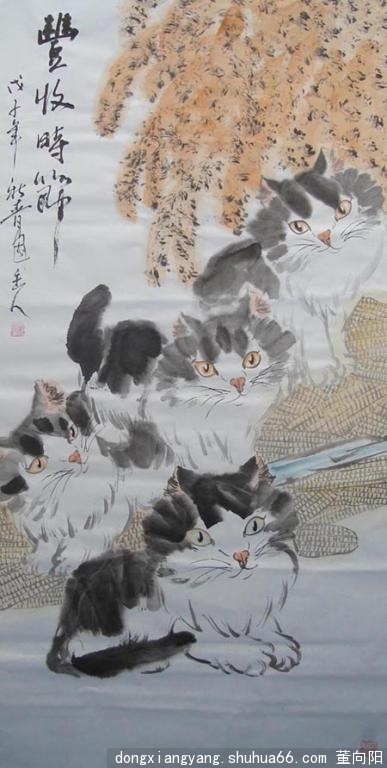 豐收時節
戊子年
dongxiangyang.shuhua66.com 董向阳